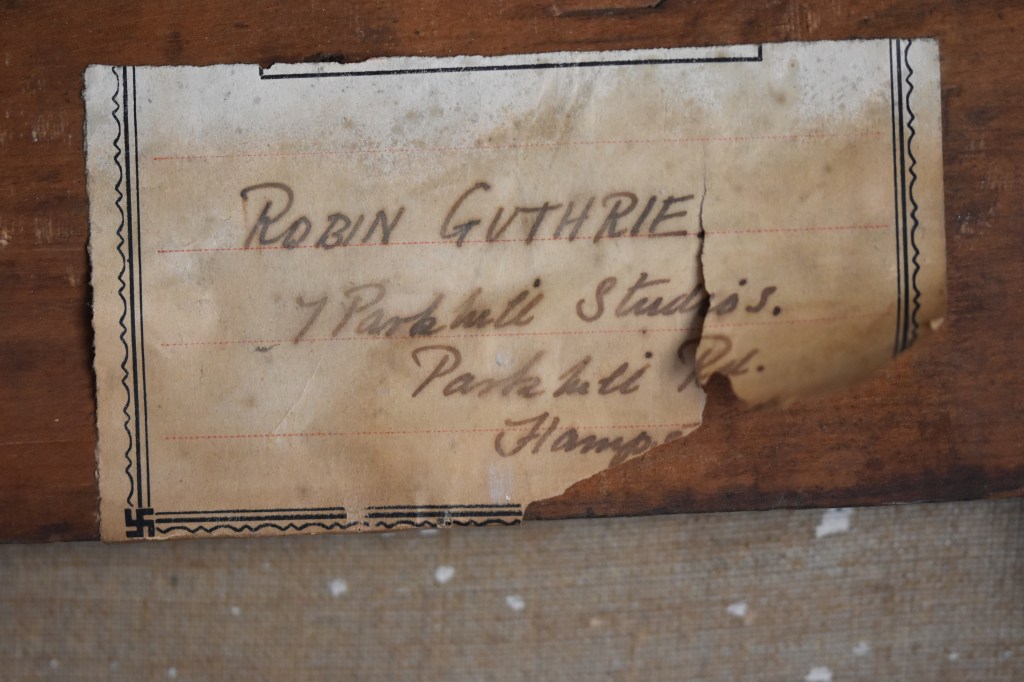 ROBIN GUTHRIE
7 Parkhill Studios.
Parkhill Rd.
Hamps